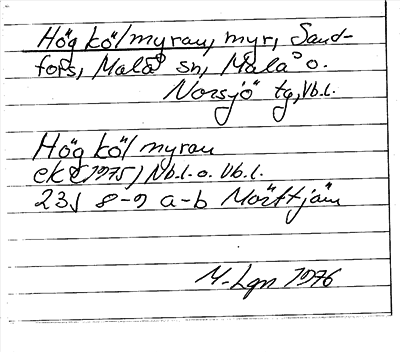 Högkölmyran, myr, Sand-
fors, Malå sn, Malå o.
Norsjö tg, Vb.l.
Högkölmyran
ek (1975) Nb.l. o. Vb.l.
23J 8-9 a-b Mörttjärn
M. Lgn 1976